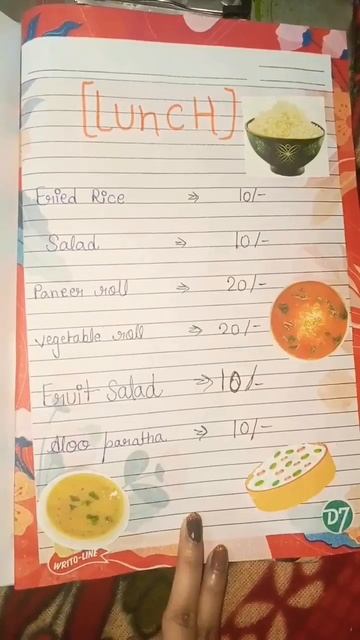 [LUncH]
Fried Rice ⇒ 10/-
Salad ⇒ 10/-
Paneer roll ⇒ 20/-
vegetable roll ⇒ 20/-
Fruit Salad ⇒ 10/-
Aloo paratha ⇒ 10/-
D7
WRITO-LINE